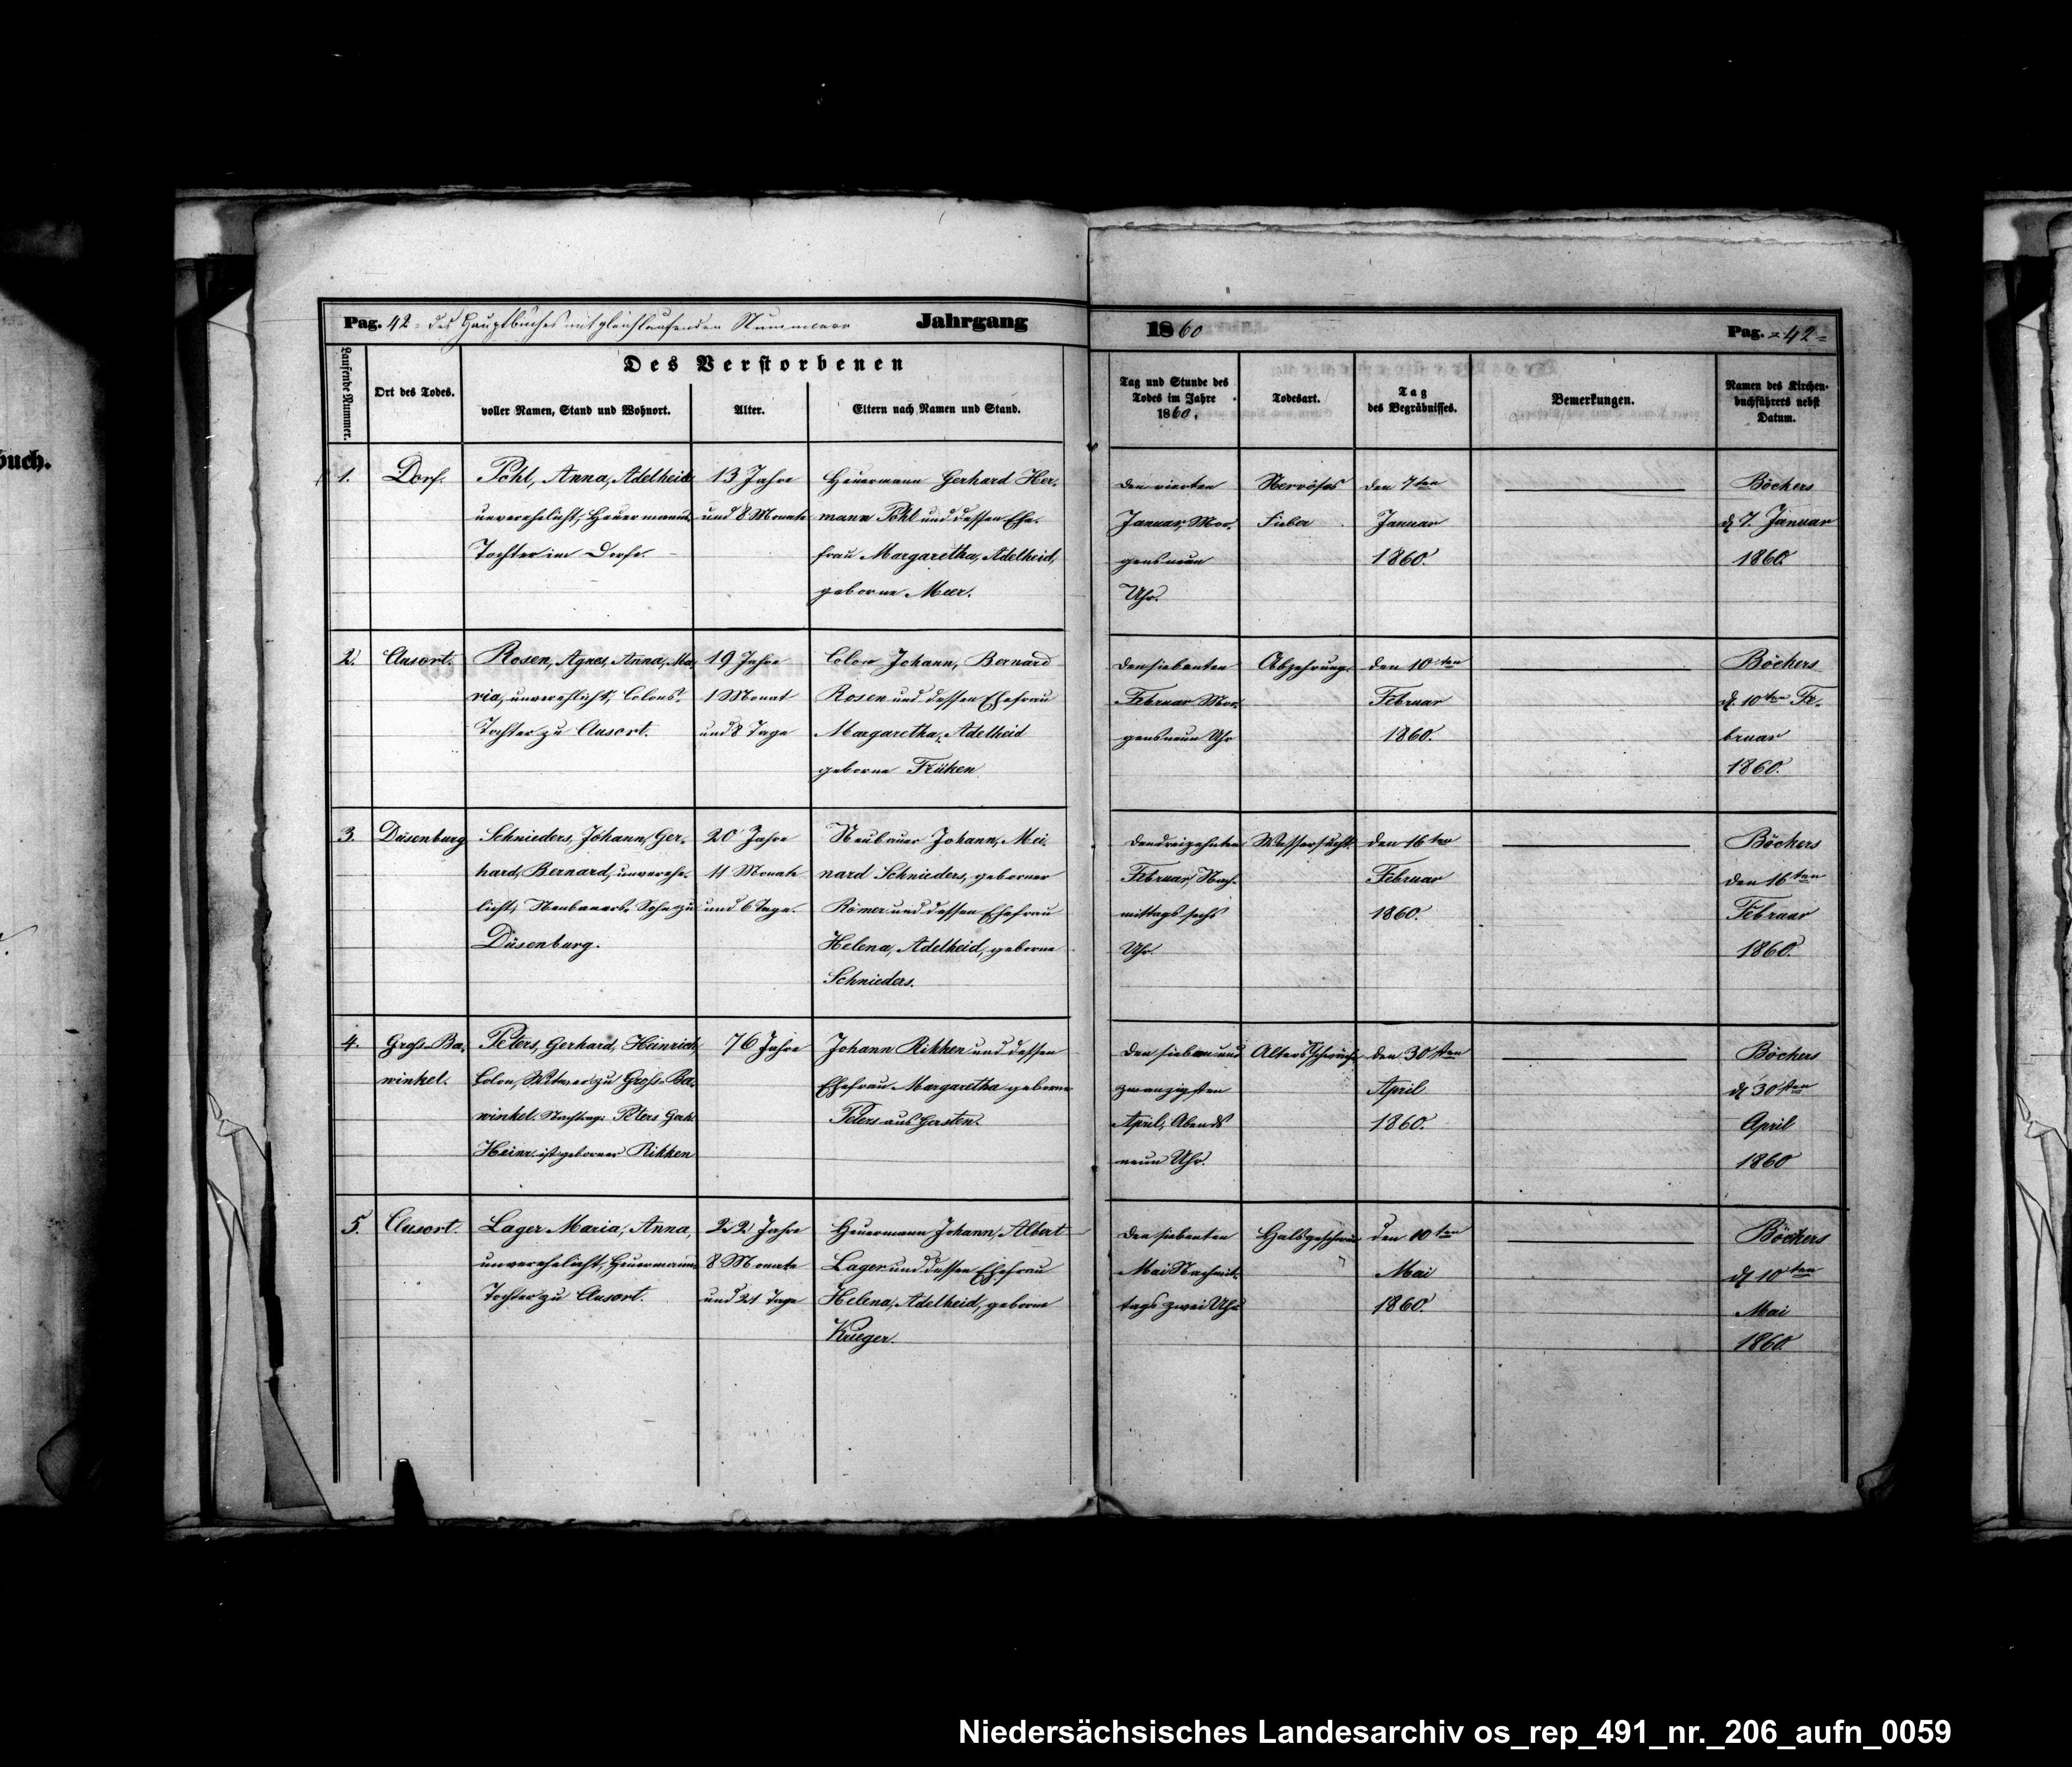 Pag. 42 = des Hauptbuches mit gleichlaufenden Nummern Jahrgang
1860 Pag. = 42 =
Laufende Nummer.
Ort des Todes.
Des Verstorbenen
voller Namen, Stand und Wohnort.
Alter.
Eltern nach Namen und Stand.
Tag und Stunde des
Todes im Jahre
1860.
Todesart.
Tag
des Begräbnisses.
Bemerkungen.
Namen des Kirchen-
buchführers nebst
Datum.
1.
Dorf.
Pohl, Anna, Adelheid
unverehelicht, Heuermanns-
Tochter im Dorfe.
13 Jahre
und 8 Monate
Heuermann Gerhard Her-
mann Pohl und dessen Ehe-
frau Margaretha, Adelheid,
geborne Meer.
den vierten
Januar, Mor-
gens neun
Uhr.
Nervöses
Fieber
den 7ten
Januar
1860.
Böckers
d. 7. Januar
1860.
2.
Clusort.
Rosen, Agnes, Anna, Ma-
ria, unverehlicht, Colons-
Tochter zu Clusort.
19 Jahre
1 Monat
und 8 Tage
Colon Johann, Bernard
Rosen und dessen Ehefrau
Margaretha, Adelheid
geborne Früken
den siebenten
Februar Mor-
gens neun Uhr
Abzehrung.
den 10ten
Februar
1860.
Böckers
d. 10ten Fe-
bruar
1860.
3.
Düsenburg
Schnieders, Johann, Ger-
hard, Bernard, unverehe-
licht, Neubauers-Sohn zu
Düsenburg.
20 Jahre
11 Monate
und 6 Tage.
Neubauer Johann, Mei-
nard Schnieders, geborner
Römer und dessen Ehefrau
Helena, Adelheid, geborne
Schnieders.
den dreizehnten
Februar, Nach-
mittags sechs
Uhr.
Wassersucht
den 16ten
Februar
1860.
Böckers
den 16ten
Februar
1860.
4.
Gross-Ba-
winkel.
Peters, Gerhard, Heinrich,
Colon, Witwer zu Gross-Ba-
winkel. Nachtrag: Peters Gerh.
Heinr. ist geborner Rikken
76 Jahre
Johann Rikken und dessen
Ehefrau Margaretha geborne
Peters aus Gersten.
den sieben und
zwanzigsten
April, Abends
neun Uhr.
Altersschwäche
den 30sten
April
1860.
Böckers
d. 30sten
April
1860
5.
Clusort.
Lager Maria, Anna,
unverehelicht, Heuermanns
Tochter zu Clusort.
22 Jahre
8 Monate
und 21 Tage
Heuermann Johann, Albert
Lager und dessen Ehefrau
Helena, Adelheid, geborne
Krieger.
den siebenten
Mai Nachmit-
tags zwei Uhr
den 10ten
Mai
1860.
Böckers
d. 10ten
Mai
1860.
Niedersächsisches Landesarchiv os_rep_491_nr._206_aufn_0059